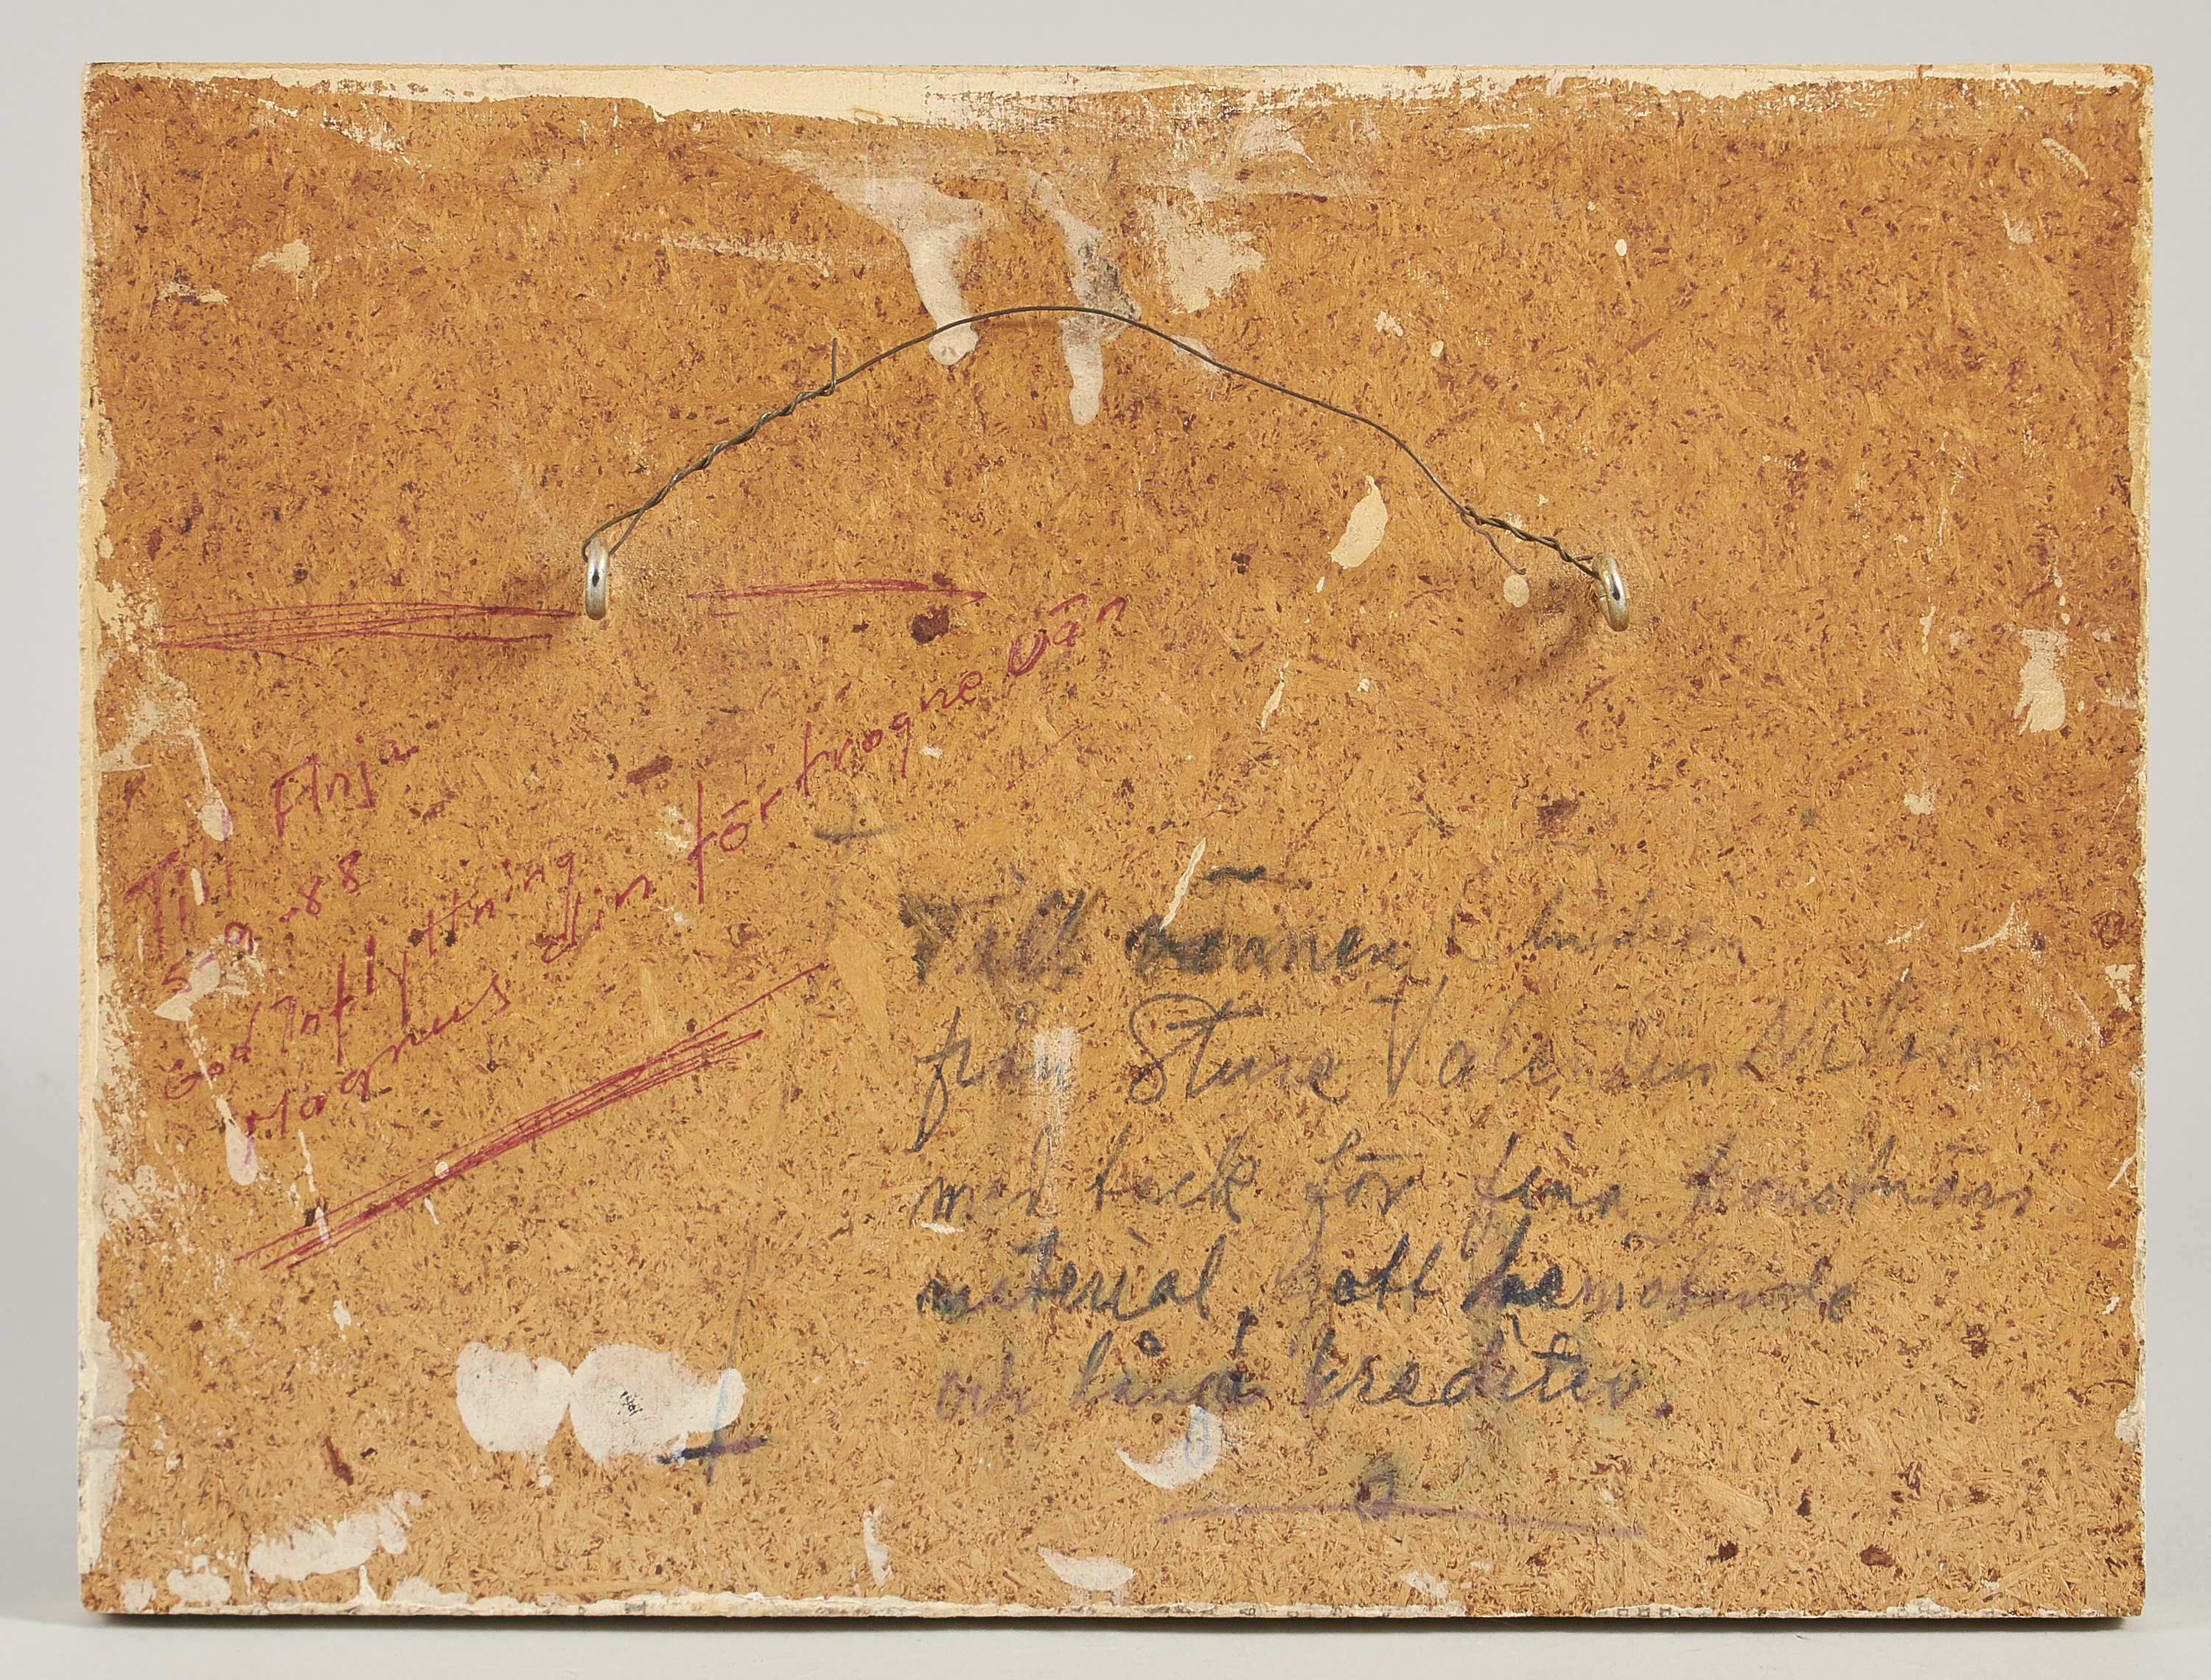 Till Anja
5-9-88
God Inflyttning
Magnus din förtrogne vän
Till vännen
från Sture Valentin Nilsson
med tack för fina konstnärs
material, gott bemötande
och långa krediter.